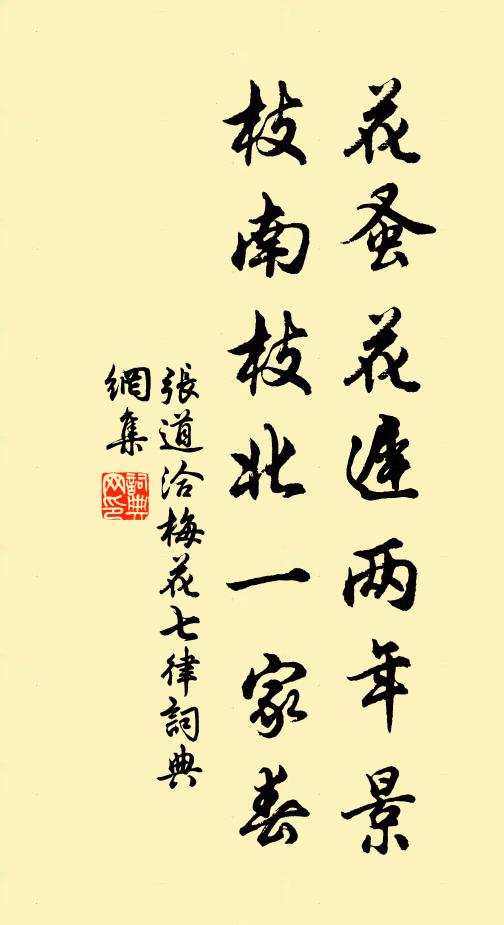 花蚤花遲两年景
枝南枝北一家春
張道洽梅花七律詞典
網集
詞典网印